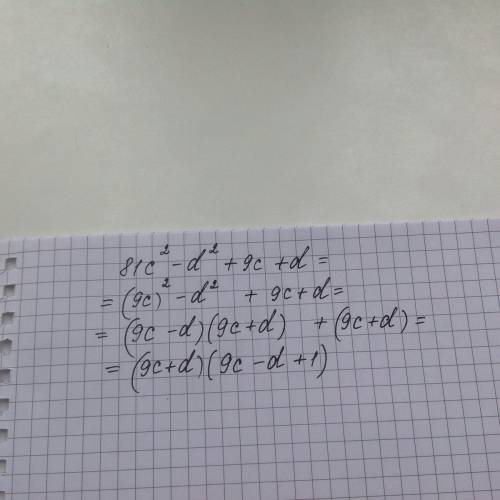 81c² - d² + 9c + d =
= (9c)² - d² + 9c + d =
= (9c - d)(9c + d) + (9c + d) =
= (9c + d)(9c - d + 1)